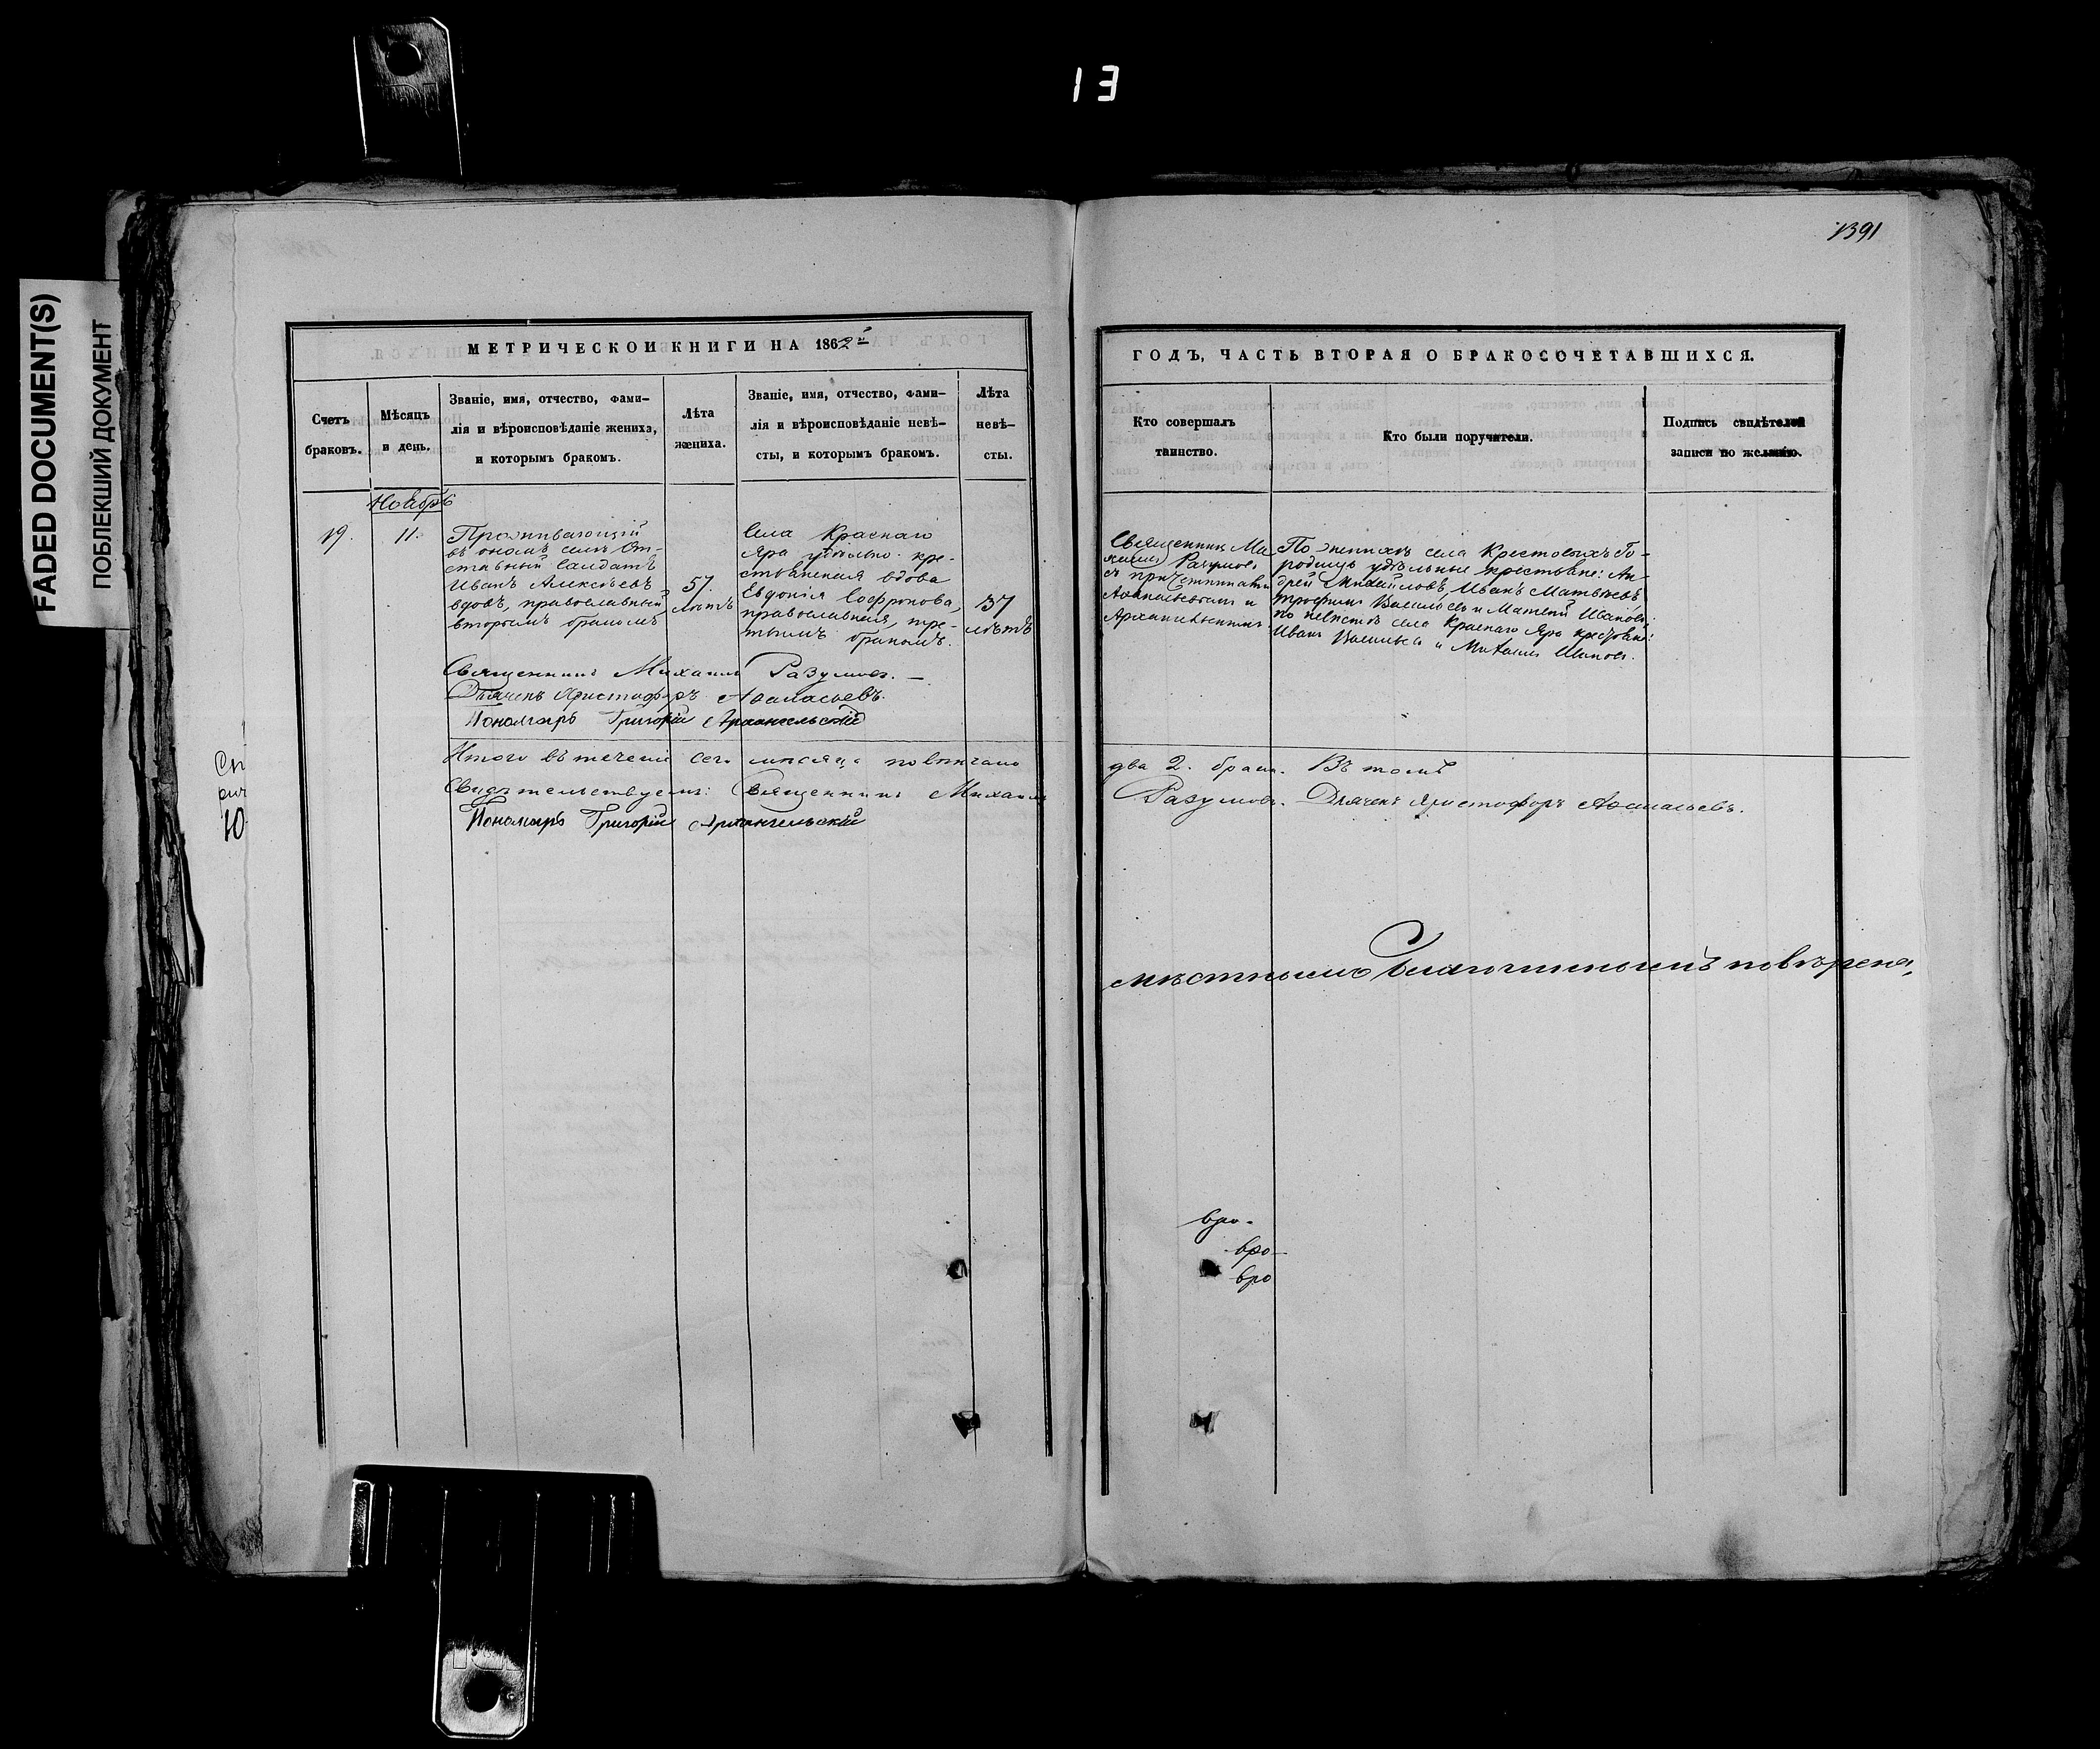 13
FADED DOCUMENT(S)
ПОБЛЕКШИЙ ДОКУМЕНТ
1391
МЕТРИЧЕСКОЙ КНИГИ НА 1862й
Счетъ браковъ.
Мѣсяцъ и день.
Званіе, имя, отчество, фами-
лія и вѣроисповѣданіе жениха,
и которымъ бракомъ.
Лѣта
жениха.
Званіе, имя, отчество, фами-
лія и вѣроисповѣданіе невѣ-
сты, и которымъ бракомъ.
Лѣта
невѣ-
сты.
Ноябрь
19.
11.
Проживающій
въ ономъ селѣ От-
ставный Салдатъ
Иванъ Алексѣевъ
вдовъ, православный
вторымъ бракомъ
57.
лѣтъ
Села Краснаго
Яра удѣльно. кре-
стьянская вдова
Евдокія Софронова,
православная, тре-
тьимъ бракомъ.
37
лѣтъ
Священникъ Михаилъ Разумовъ.
Дьячекъ Христофоръ Аѳанасьевъ.
Пономарь Григорій Архангельскій
Итого въ теченіи сего мѣсяца повѣнчано
Свидѣтельствуемъ: Священникъ Михаилъ
Пономарь Григорій Архангельскій
ГОДЪ, ЧАСТЬ ВТОРАЯ О БРАКОСОЧЕТАВШИХСЯ.
Кто совершалъ
таинство.
Кто были поручители.
Подпись свидѣтелей
записи по желанію.
Священникъ Ми-
хаилъ Разумовъ
съ причетниками
Аѳанасьевымъ и
Архангельскимъ
По женихѣ села Крестовыхъ Го-
родищъ удѣльные крестьяне: Ан-
дрей Михайловъ, Иванъ Матвѣевъ
Трофимъ Васильевъ и Матвей Ивановъ;
по невѣстѣ села Краснаго Яра крестьяне:
Иванъ Васильевъ и Ивановъ.
два 2. брака. Въ томъ
Разумовъ. Дьячекъ Христофоръ Аѳанасьевъ.
мѣстнымъ Благочиннымъ повѣрена,
вро-
вро-
вро